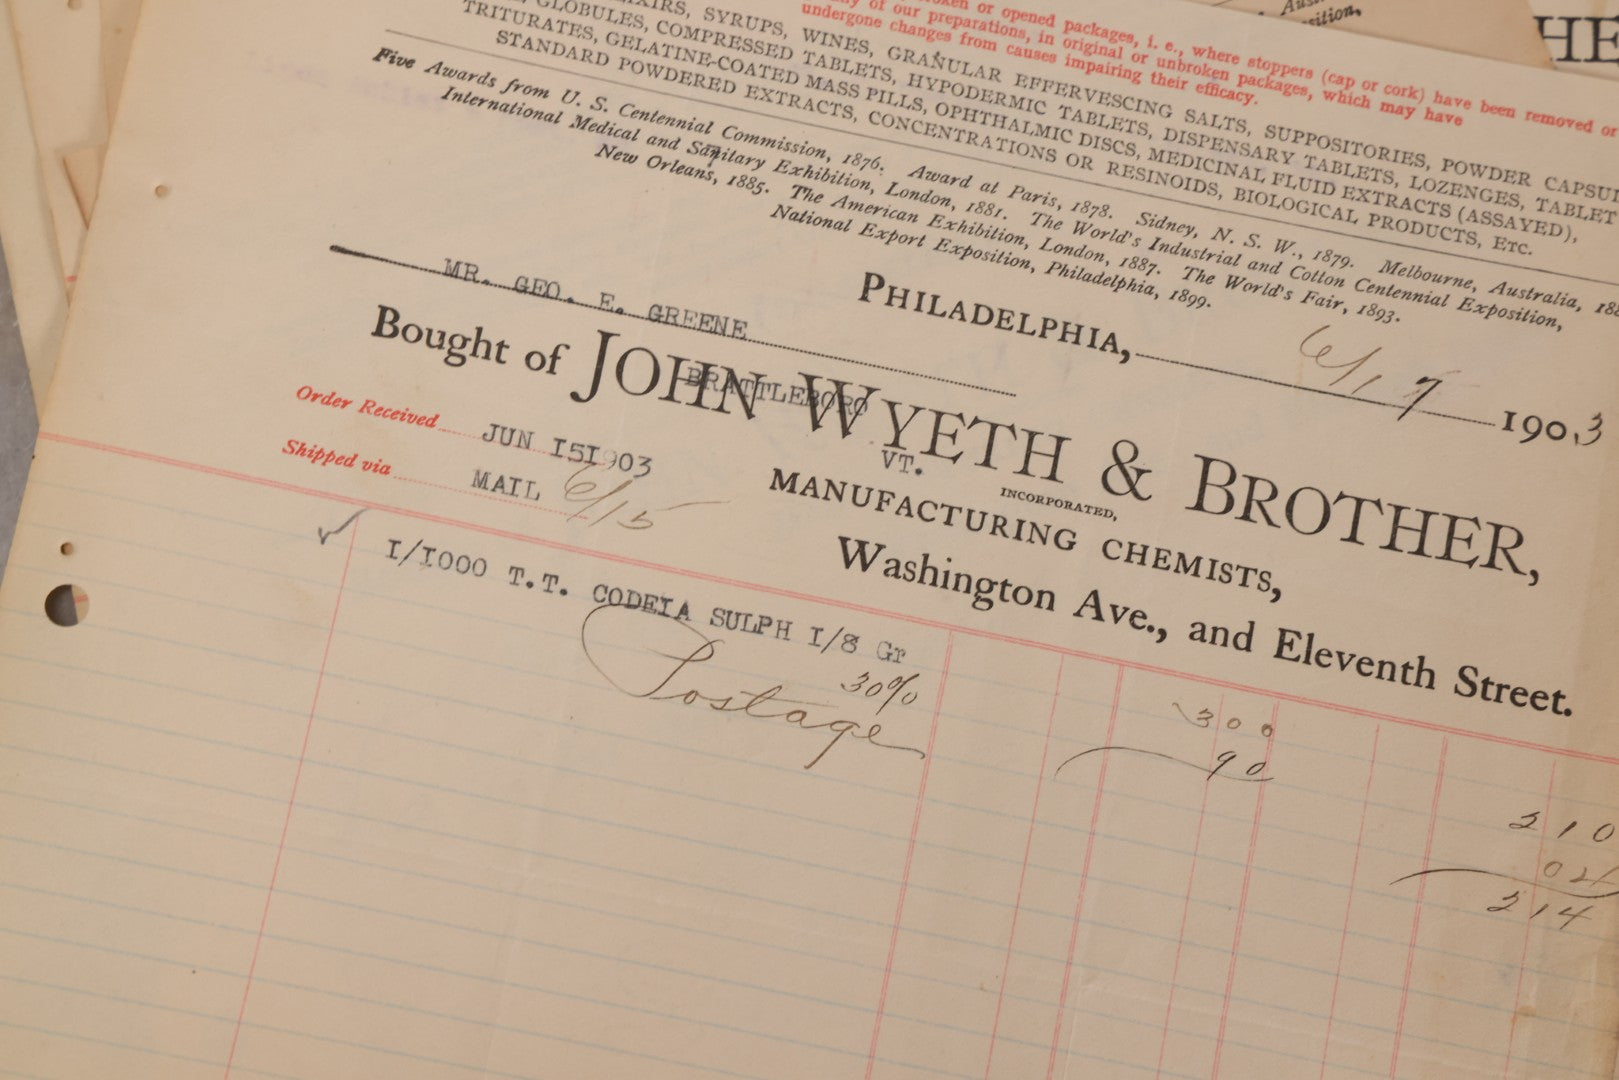 HE
Aus
sition.
ken or opened packages, i. e., where stoppers (cap or cork) have been removed or
ny of our preparations, in original or unbroken packages, which may have
undergone changes from causes impairing their efficacy.
IXIRS, SYRUPS, WINES, GRANULAR EFFERVESCING SALTS, SUPPOSITORIES, POWDER CAPSU
GLOBULES, COMPRESSED TABLETS, HYPODERMIC TABLETS, DISPENSARY TABLETS, LOZENGES, TABLET
TRITURATES, GELATINE-COATED MASS PILLS, OPHTHALMIC DISCS, MEDICINAL FLUID EXTRACTS (ASSAYED),
STANDARD POWDERED EXTRACTS, CONCENTRATIONS OR RESINOIDS, BIOLOGICAL PRODUCTS, ETC.
Five Awards from U. S. Centennial Commission, 1876. Award at Paris, 1878. Sidney, N. S. W., 1879. Melbourne, Australia, 188
International Medical and Sanitary Exhibition, London, 1881. The World's Industrial and Cotton Centennial Exposition,
New Orleans, 1885. The American Exhibition, London, 1887. The World's Fair, 1893.
National Export Exposition, Philadelphia, 1899.
PHILADELPHIA, 6/17 1903
MR. GEO. E. GREENE
BRATTLEBORO
VT.
Bought of JOHN WYETH & BROTHER,
INCORPORATED,
MANUFACTURING CHEMISTS,
Washington Ave., and Eleventh Street.
Order Received JUN 151903
Shipped via MAIL 6/15
I/I000 T.T. CODEIA SULPH I/8 Gr 300
30% 90
210
Postage 04
214